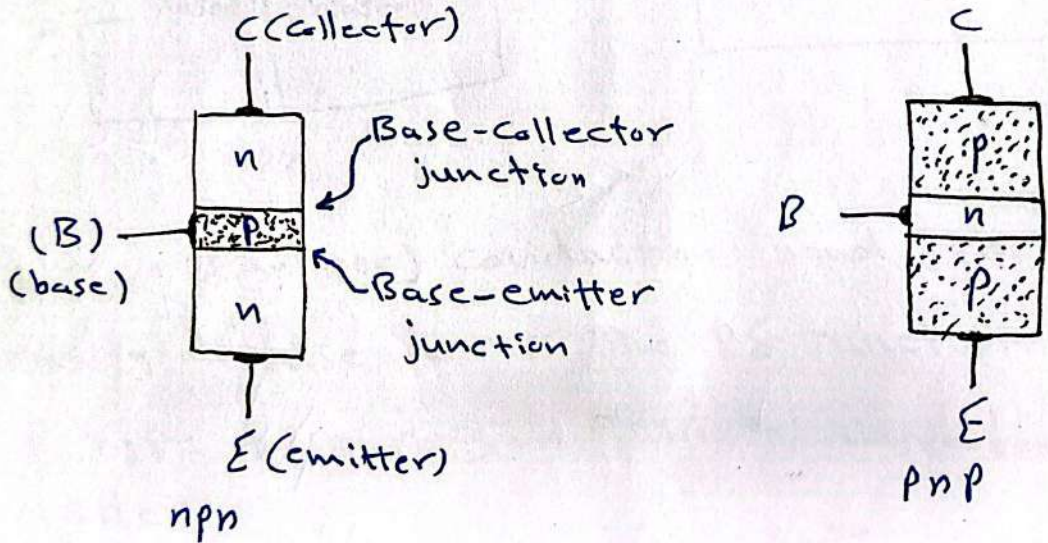 C (Collector)
n
Base-Collector
junction
(B)
(base)
P
n
Base-emitter
junction
E (emitter)
npn
C
P
B
n
P
E
PnP